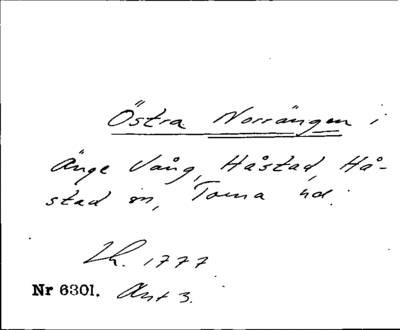 Östra Norrängen i
Änge Vång, Håstad, Hå-
stad sn, Torna hd.
Lh. 1777.
Nr 6301. Akt 3.